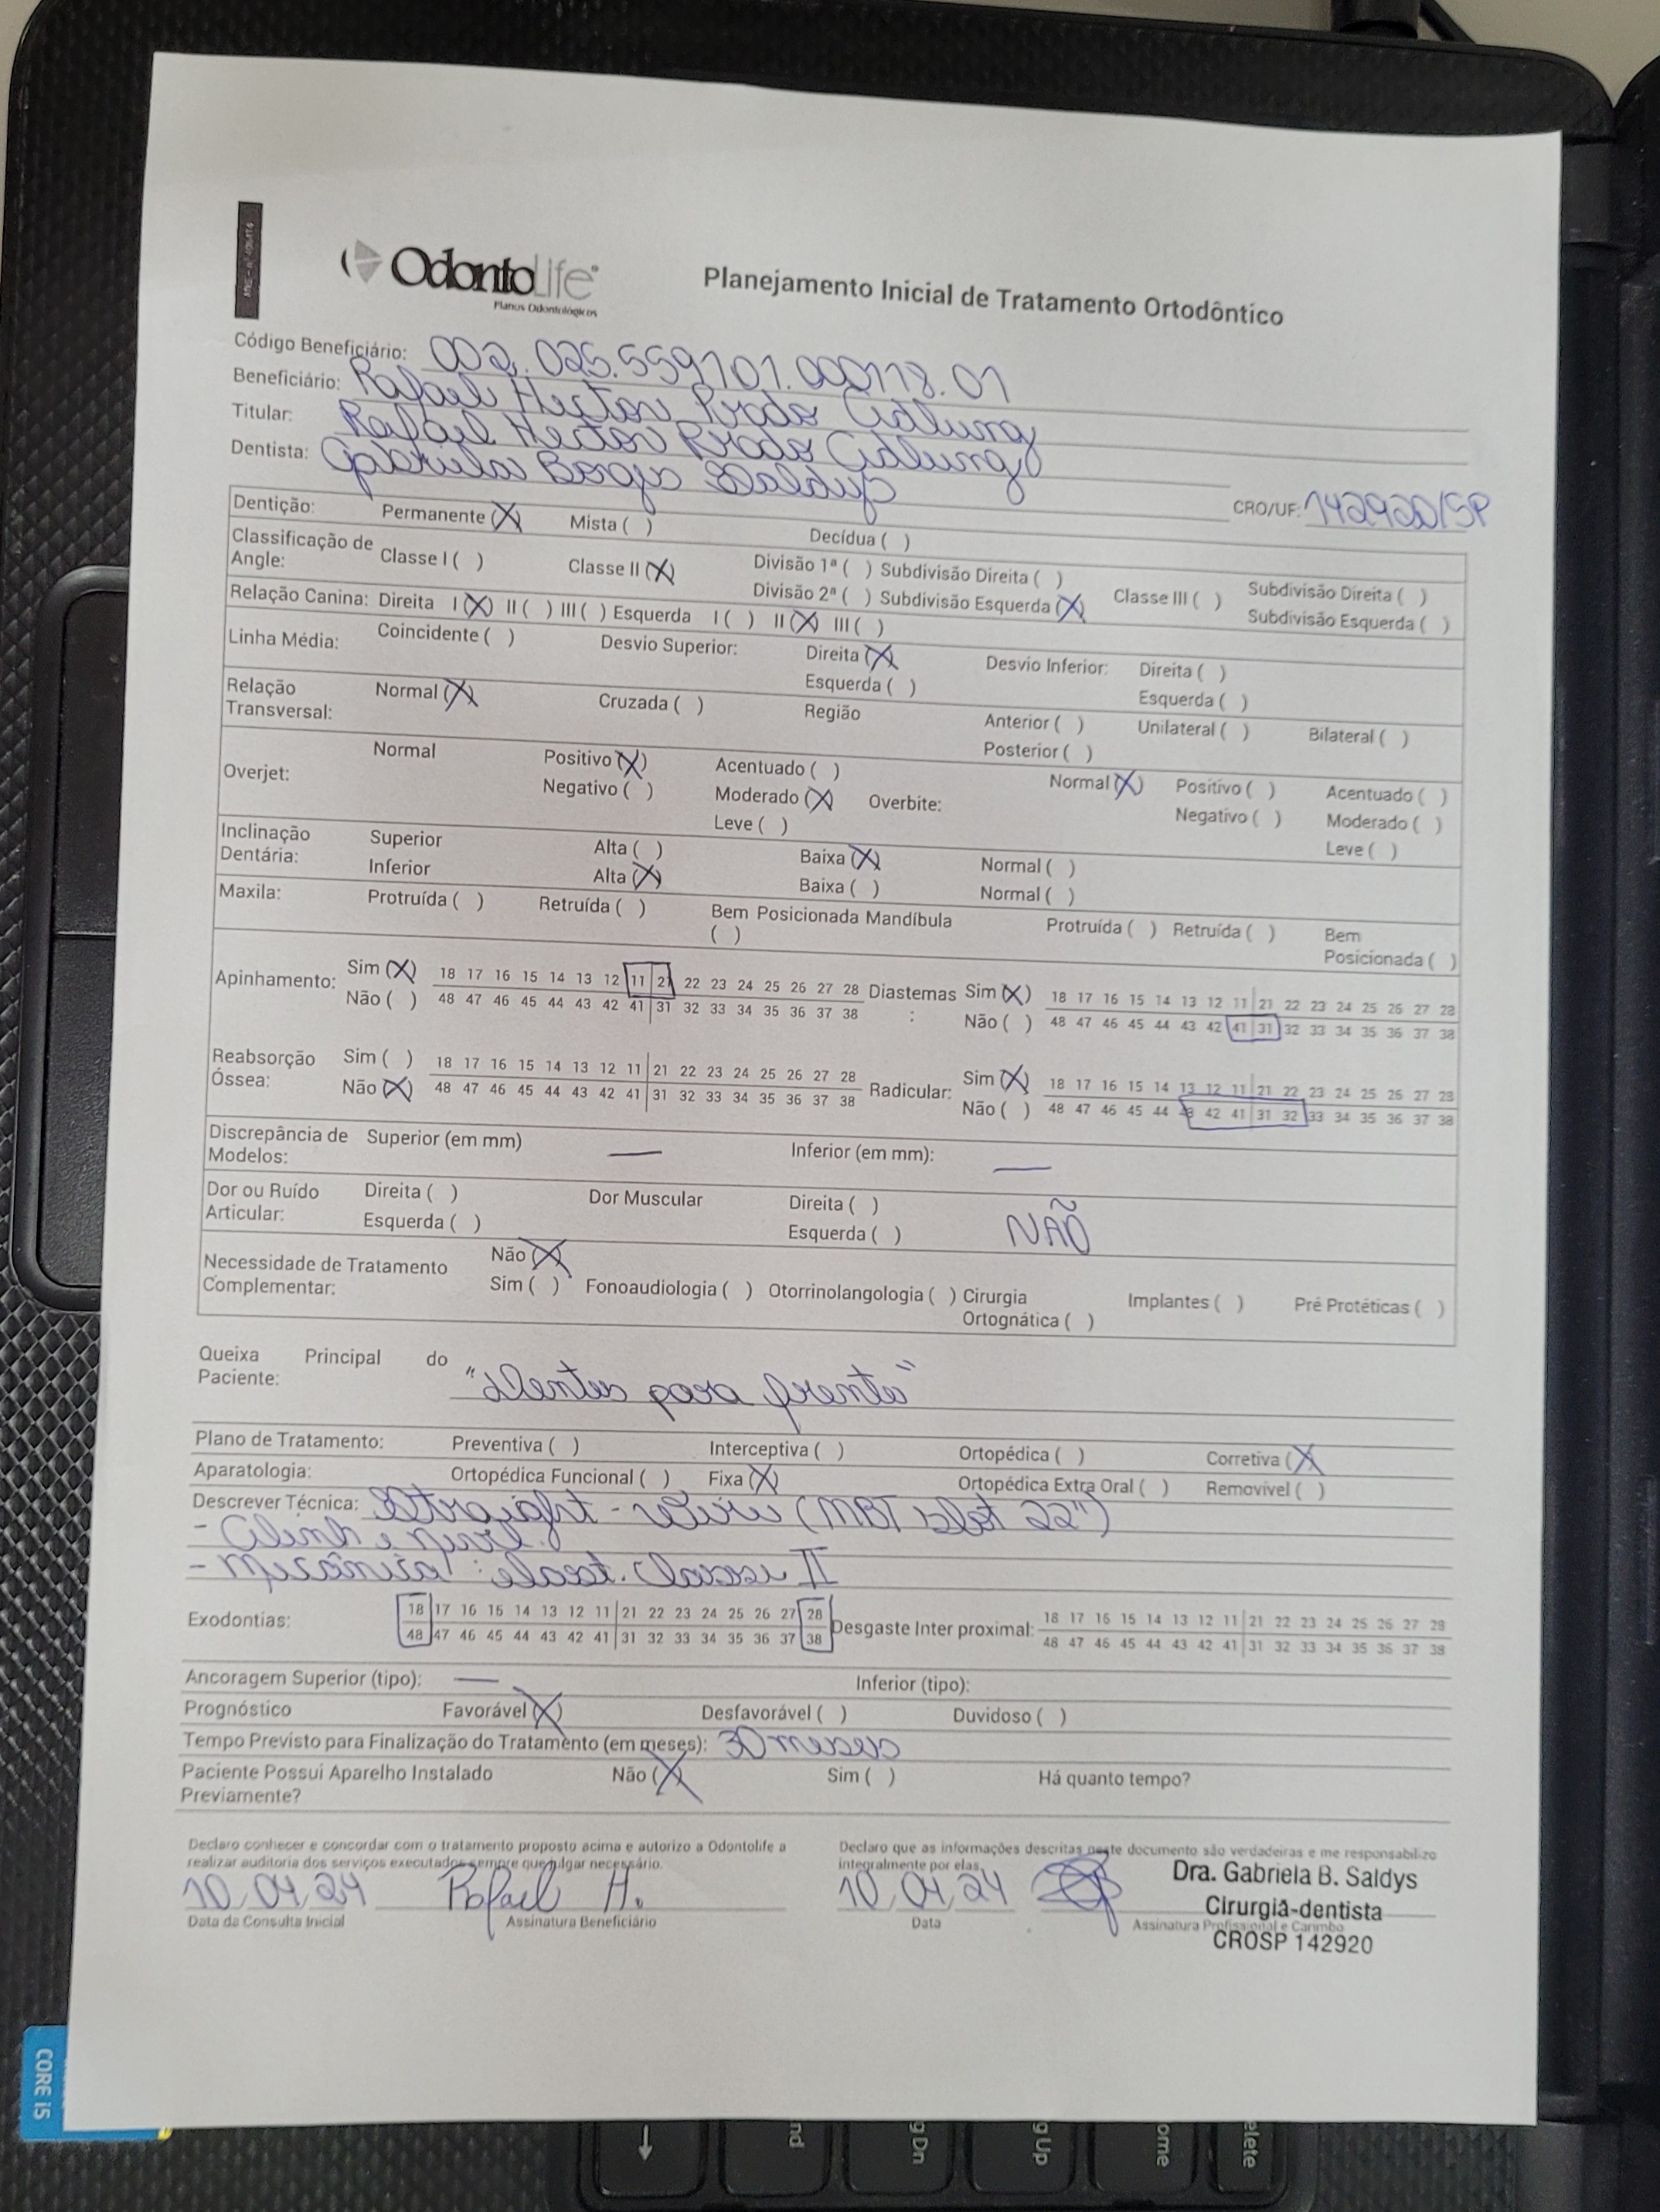 OdontoLife
Planos Odontológicos
Planejamento Inicial de Tratamento Ortodôntico
Código Beneficiário: 002.025.559101.000118.01
Beneficiário: Rafael Hecton Prado
Titular: Rafael Hecton Prado
Dentista: Gabriela Borges Saldys CRO/UF: 142920/SP
Dentição: Permanente (X) Mista ( ) Decídua ( )
Classificação de Angle: Classe I ( ) Classe II (X) Divisão 1ª ( ) Subdivisão Direita ( ) Classe III ( ) Subdivisão Direita ( )
Divisão 2ª ( ) Subdivisão Esquerda (X) Subdivisão Esquerda ( )
Relação Canina: Direita I (X) II ( ) III ( ) Esquerda I ( ) II (X) III ( )
Linha Média: Coincidente ( ) Desvio Superior: Direita (X) Desvio Inferior: Direita ( )
Esquerda ( ) Esquerda ( )
Relação Transversal: Normal (X) Cruzada ( ) Região Anterior ( ) Unilateral ( ) Bilateral ( )
Posterior ( )
Overjet: Normal Positivo (X) Acentuado ( ) Overbite: Normal (X) Positivo ( ) Acentuado ( )
Negativo ( ) Moderado (X) Negativo ( ) Moderado ( )
Leve ( ) Leve ( )
Inclinação Dentária: Superior Alta ( ) Baixa (X) Normal ( )
Inferior Alta (X) Baixa ( ) Normal ( )
Maxila: Protruída ( ) Retruída ( ) Bem Posicionada ( ) Mandíbula Protruída ( ) Retruída ( ) Bem Posicionada ( )
Apinhamento: Sim (X) 18 17 16 15 14 13 12 11 21 22 23 24 25 26 27 28 Diastemas: Sim (X) 18 17 16 15 14 13 12 11 21 22 23 24 25 26 27 28
Não ( ) 48 47 46 45 44 43 42 41 31 32 33 34 35 36 37 38 Não ( ) 48 47 46 45 44 43 42 41 31 32 33 34 35 36 37 38
Reabsorção Óssea: Sim ( ) 18 17 16 15 14 13 12 11 21 22 23 24 25 26 27 28 Radicular: Sim (X) 18 17 16 15 14 13 12 11 21 22 23 24 25 26 27 28
Não (X) 48 47 46 45 44 43 42 41 31 32 33 34 35 36 37 38 Não ( ) 48 47 46 45 44 43 42 41 31 32 33 34 35 36 37 38
Discrepância de Modelos: Superior (em mm) — Inferior (em mm): —
Dor ou Ruído Articular: Direita ( ) Dor Muscular Direita ( ) NÃO
Esquerda ( ) Esquerda ( )
Necessidade de Tratamento Complementar: Não (X)
Sim ( ) Fonoaudiologia ( ) Otorrinolangologia ( ) Cirurgia Ortognática ( ) Implantes ( ) Pré Protéticas ( )
Queixa Principal do Paciente: "Dentes para frente"
Plano de Tratamento: Preventiva ( ) Interceptiva ( ) Ortopédica ( ) Corretiva (X)
Aparatologia: Ortopédica Funcional ( ) Fixa (X) Ortopédica Extra Oral ( ) Removível ( )
Descrever Técnica: Straight-Wire (MBT slot 22")
- Alinh e nivel.
- Mecânica: elast. Classe II
Exodontias: 18 17 16 15 14 13 12 11 21 22 23 24 25 26 27 28 Desgaste Inter proximal: 18 17 16 15 14 13 12 11 21 22 23 24 25 26 27 28
48 47 46 45 44 43 42 41 31 32 33 34 35 36 37 38 48 47 46 45 44 43 42 41 31 32 33 34 35 36 37 38
Ancoragem Superior (tipo): — Inferior (tipo):
Prognóstico Favorável (X) Desfavorável ( ) Duvidoso ( )
Tempo Previsto para Finalização do Tratamento (em meses): 30 meses
Paciente Possui Aparelho Instalado Previamente? Não (X) Sim ( ) Há quanto tempo?
Declaro conhecer e concordar com o tratamento proposto acima e autorizo a Odontolife a
realizar auditoria dos serviços executados sempre que julgar necessário.
10 04 24 Rafael H.
Data da Consulta Inicial Assinatura Beneficiário
Declaro que as informações descritas neste documento são verdadeiras e me responsabilizo
integralmente por elas.
10 04 24
Data Assinatura Profissional e Carimbo
Dra. Gabriela B. Saldys
Cirurgiã-dentista
CROSP 142920
CORE i5
nd
g Dn
g Up
ome
elete